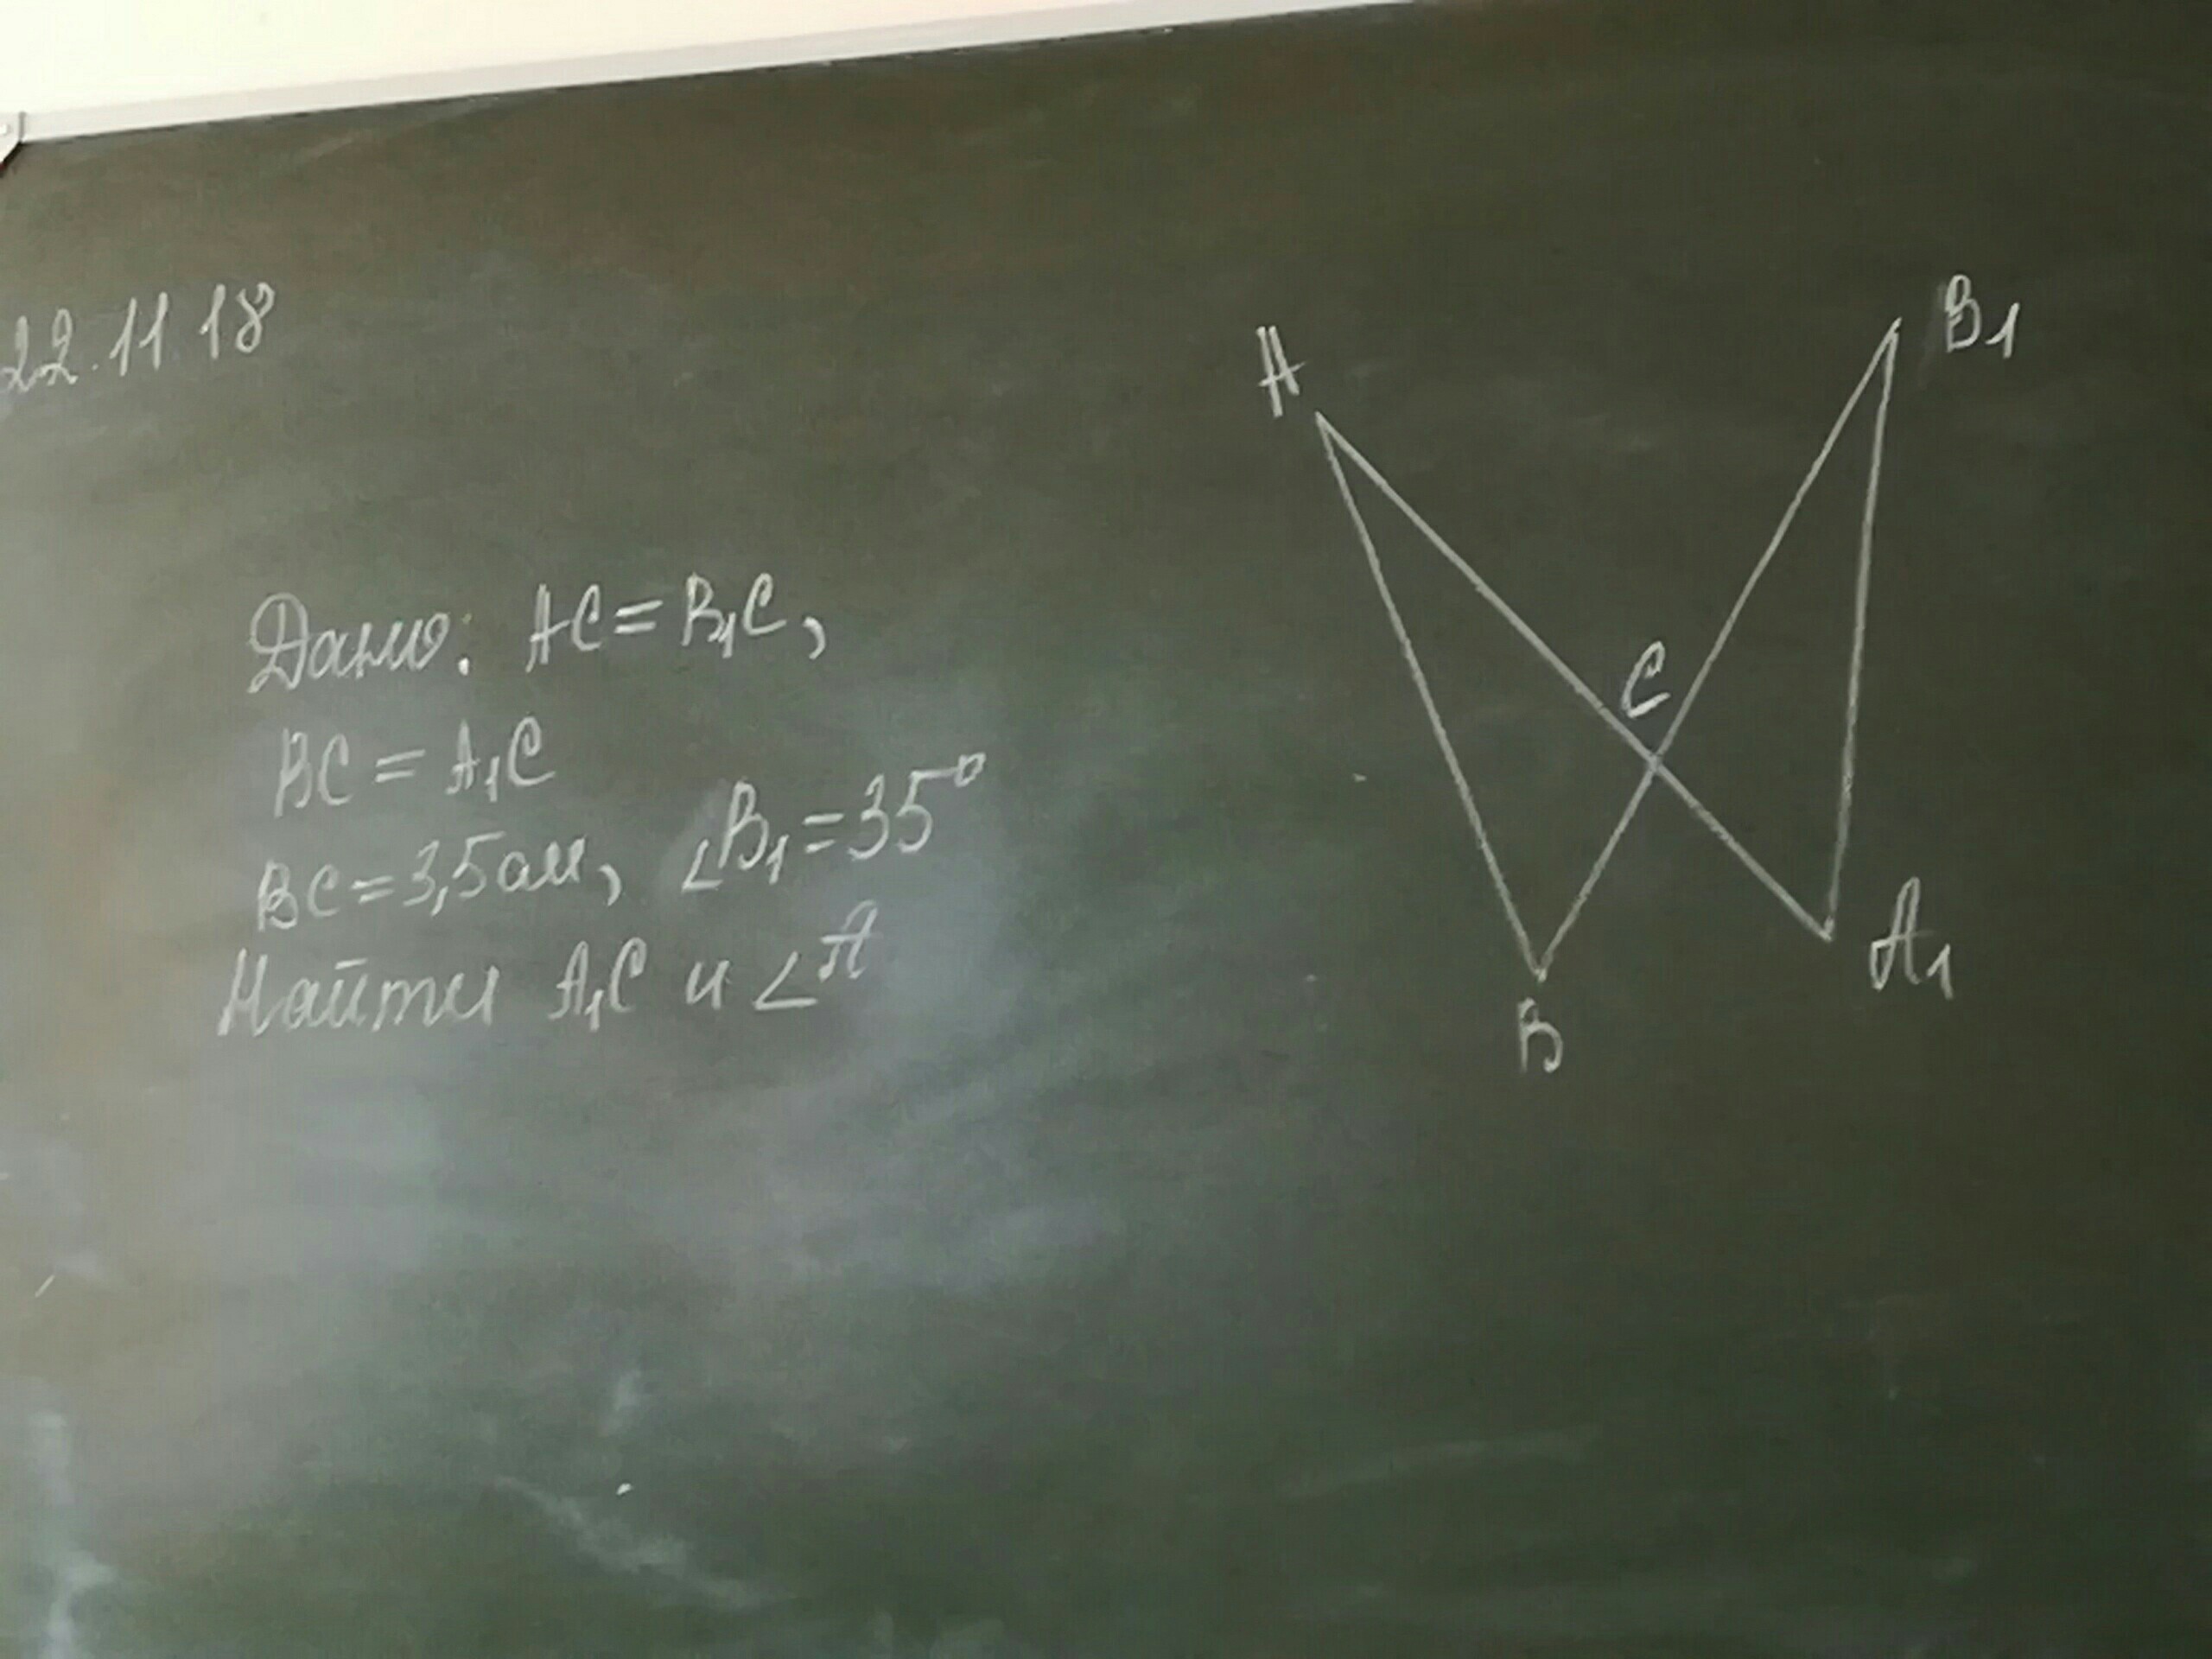 22.11 18
Дано: AC = B₁C,
BC = A₁C
BC = 3,5 см, ∠B₁ = 35°
Найти A₁C и ∠A
A
B₁
C
A₁
B